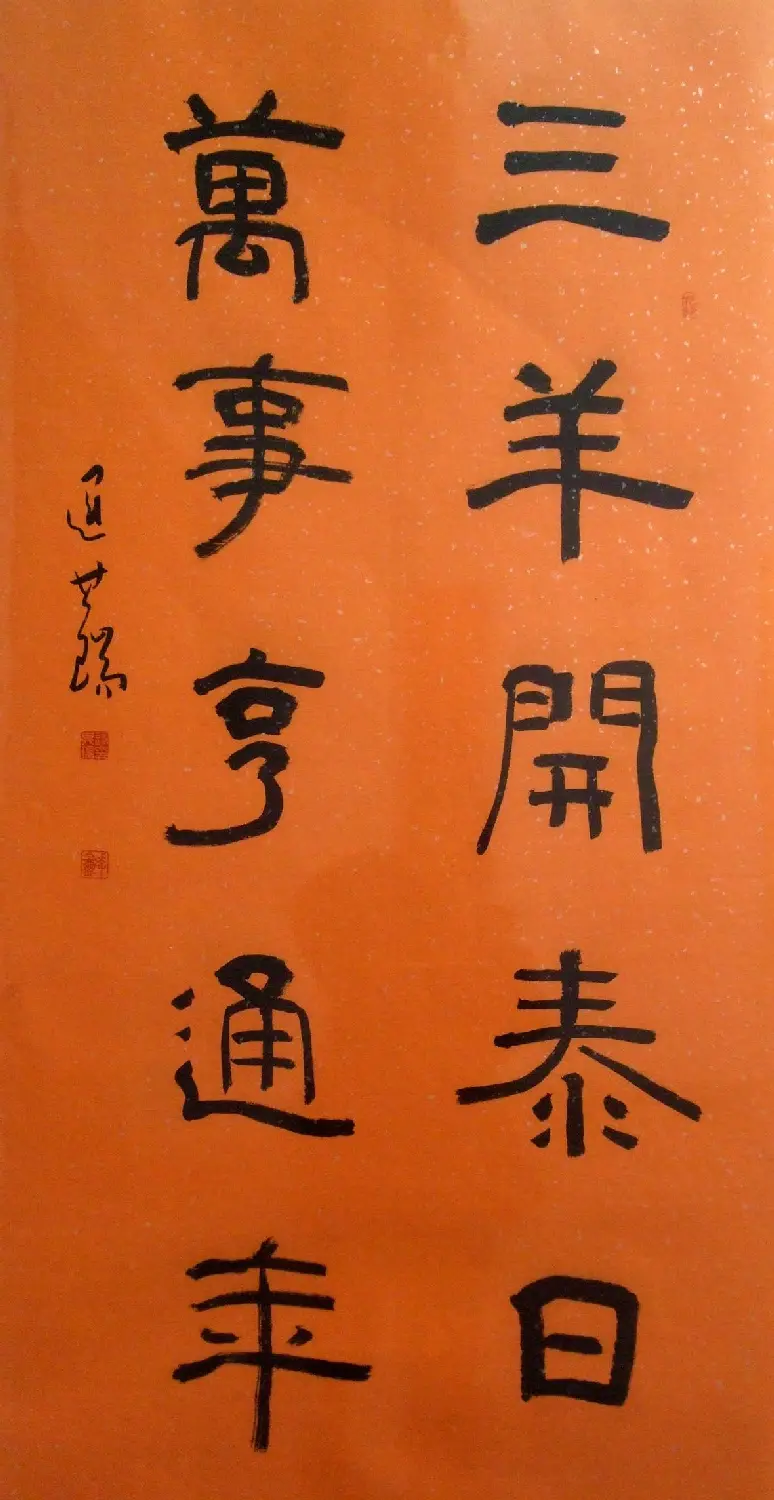 三羊開泰日
萬事亨通年